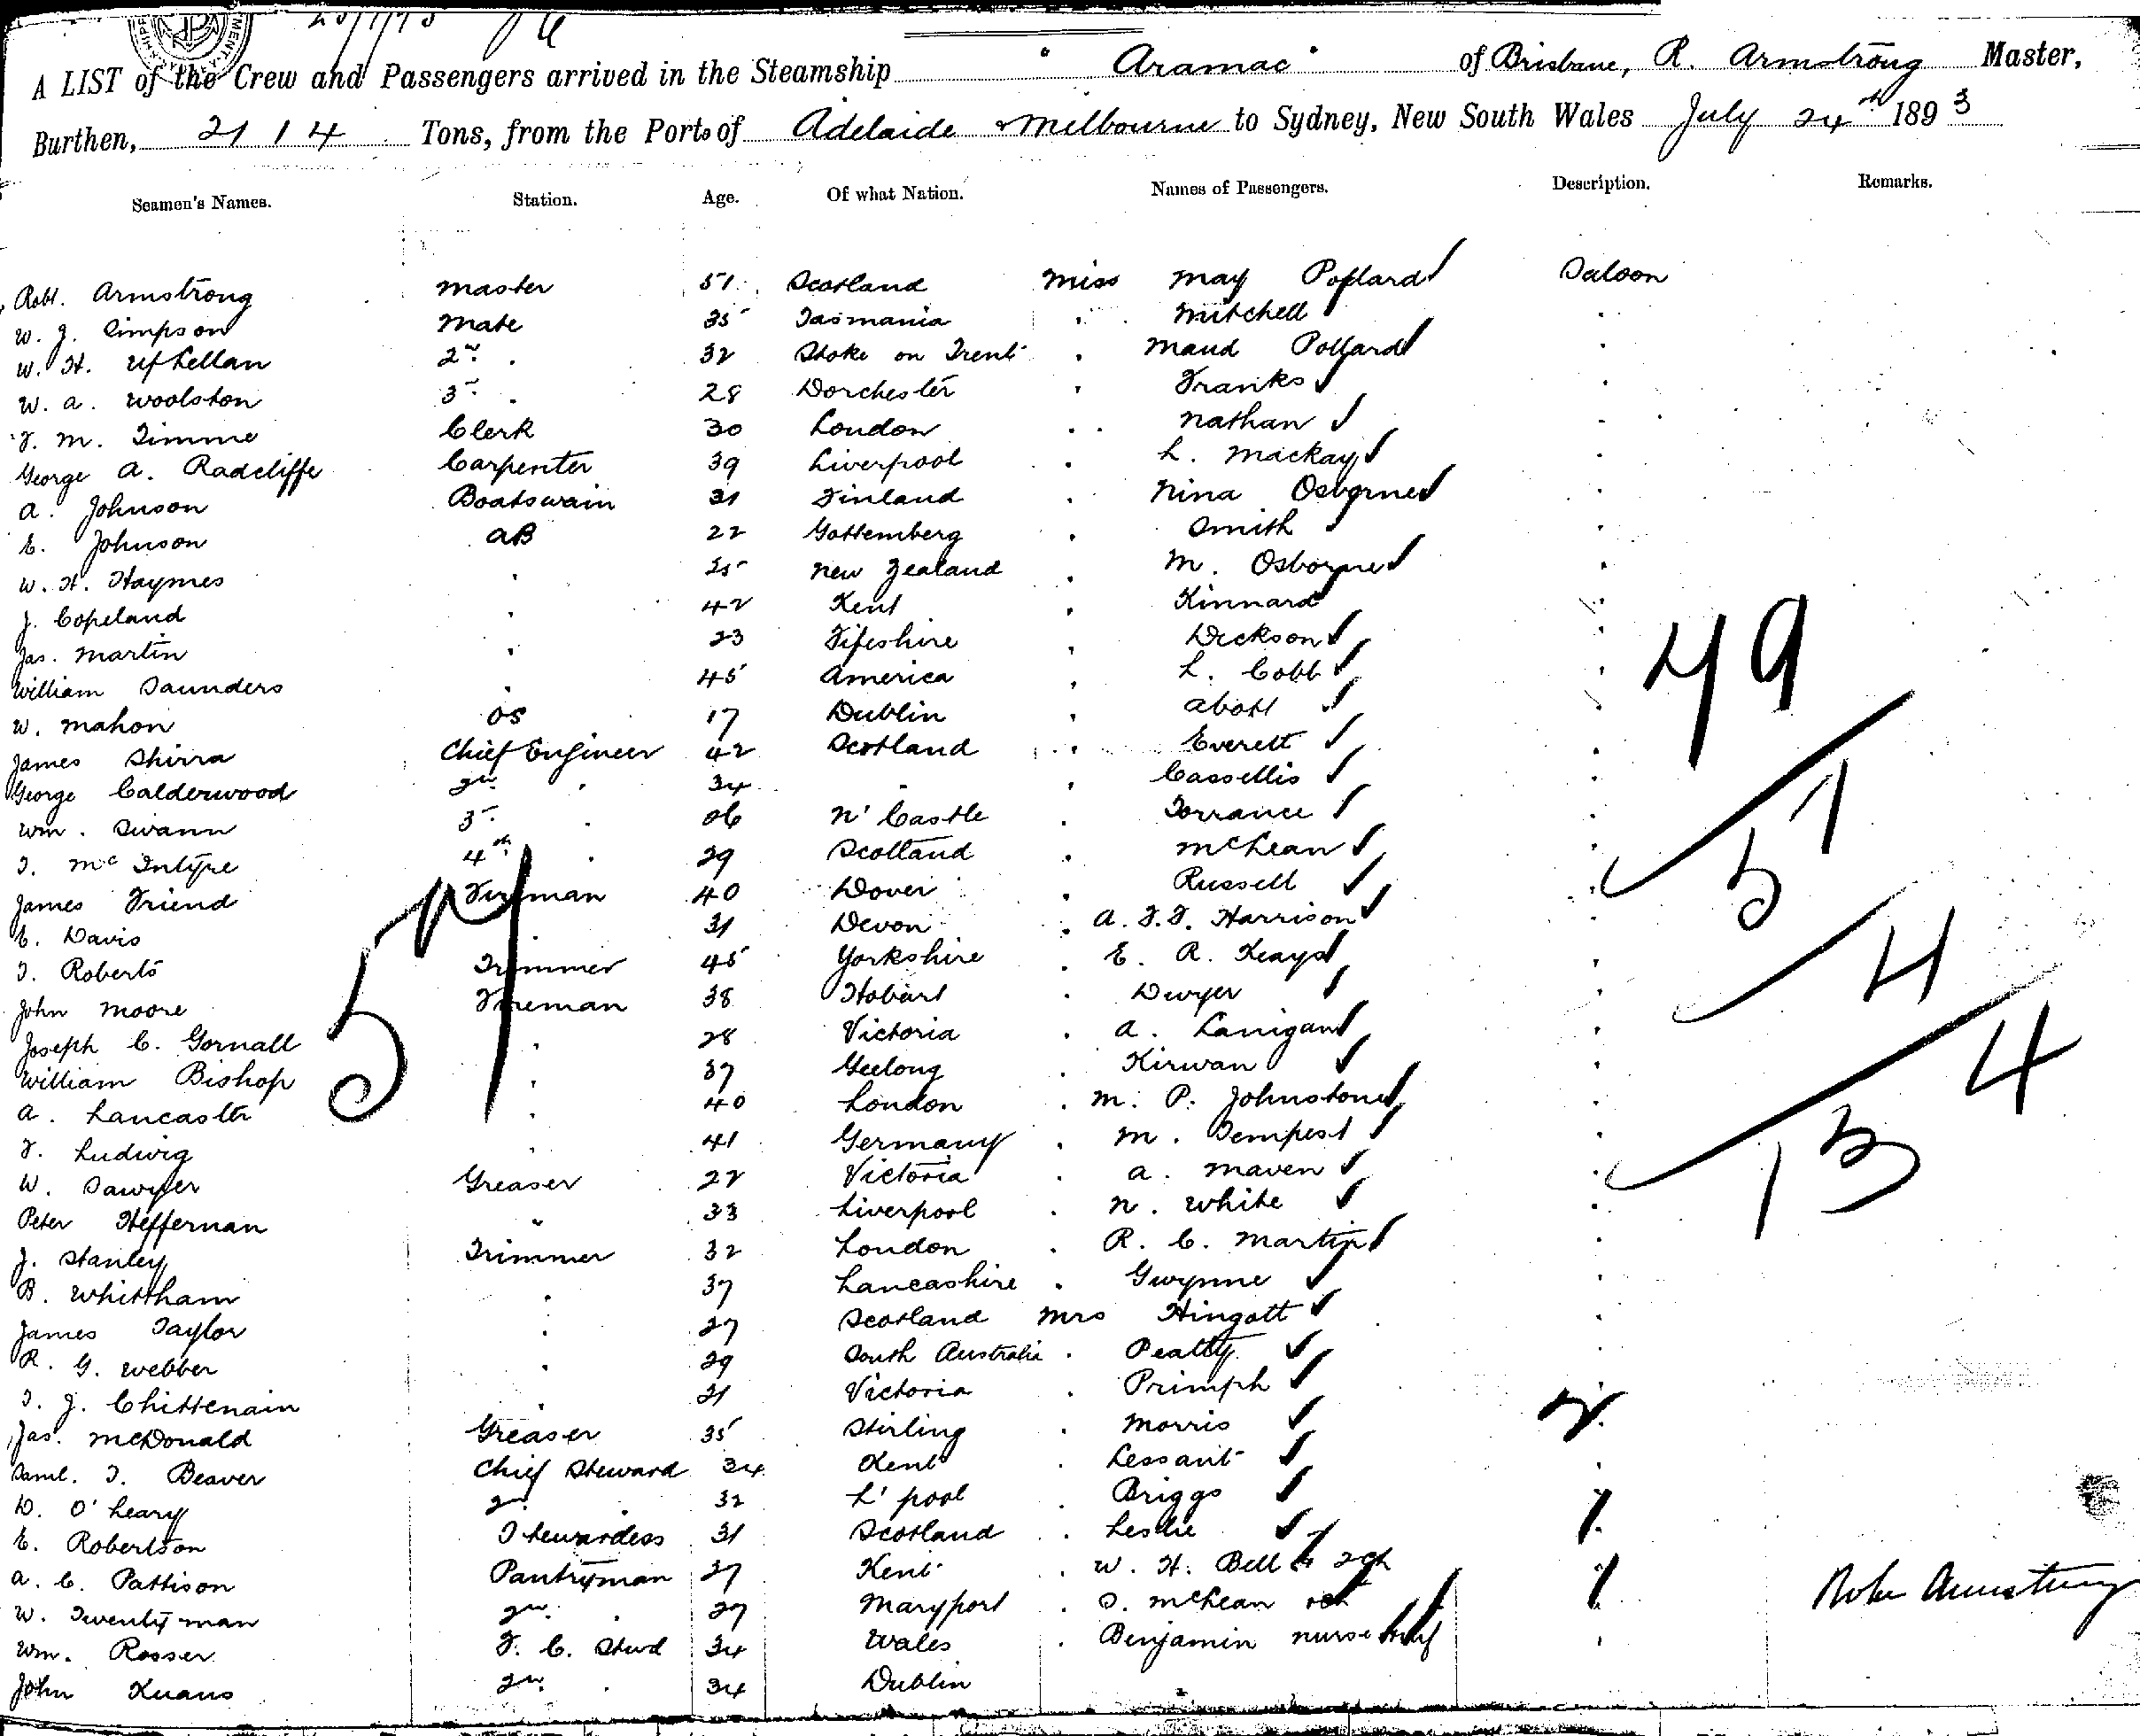 25/7/93
A LIST of the Crew and Passengers arrived in the Steamship "Aramac" of Brisbane, R. Armstrong Master,
Burthen, 2114 Tons, from the Ports of Adelaide & Melbourne to Sydney, New South Wales July 24th 1893
Seamen's Names. Station. Age. Of what Nation. Names of Passengers. Description. Remarks.
Robt. Armstrong Master 51 Scotland Miss May Pollard Saloon
W. J. Simpson Mate 35 Tasmania " Mitchell "
W. H. Up Lellan 2nd " 32 Stoke on Trent " Maud Pollard "
W. A. Woolston 3rd " 28 Dorchester " Franks "
F. M. Timme Clerk 30 London " Nathan "
George A. Radcliffe Carpenter 39 Liverpool " L. Mackay "
A. Johnson Boatswain 31 Finland " Nina Osborne "
E. Johnson AB 22 Gottemberg " Smith "
W. H. Haymes " 25 New Zealand " M. Osborne "
J. Copeland " 42 Kent " Kinnard "
Jas. Martin " 23 Fifeshire " Dickson "
William Saunders " 45 America " L. Cobb "
W. Mahon OS 17 Dublin " Abott "
James Shirra Chief Engineer 42 Scotland " Everett "
George Calderwood 2nd " 34 " " Cassellis "
Wm. Swann 3rd " 26 N'Castle " Torrance "
T. McIntyre 4th " 29 Scotland " McLean "
James Friend Fireman 40 Dover " Russell "
E. Davis " 31 Devon " A. F. F. Harrison "
T. Roberts Trimmer 45 Yorkshire " E. R. Keays "
John Moore Fireman 38 Hobart " Dwyer "
Joseph C. Gornall " 28 Victoria " A. Lanigan "
William Bishop " 37 Geelong " Kirwan "
A. Lancaster " 40 London " M. P. Johnstone "
F. Ludwig " 41 Germany " M. Tempest "
W. Sawyer Greaser 22 Victoria " A. Maven "
Peter Heffernan " 33 Liverpool " N. White "
J. Stanley Trimmer 32 London " R. C. Martin "
B. Whittham " 37 Lancashire " Gwynne "
James Taylor " 27 Scotland Mrs Hingott "
R. G. Webber " 29 South Australia " Peatty "
T. J. Chittenain " 21 Victoria " Primph "
Jas. McDonald Greaser 35 Stirling " Morris "
Saml. T. Beaver Chief Steward 34 Kent " Lessant "
D. O'Leary 2nd " 32 L'pool " Briggs "
E. Robertson Stewardess 31 Scotland " Leslie "
A. C. Pattison Pantryman 27 Kent " W. H. Bell & 2ch "
W. Twentyman 2nd " 27 Maryport " S. McLean "
Wm. Rosser F. C. Stwd 34 Wales " Benjamin nurse "
John Kuans 2nd " 34 Dublin
57
49
57
4
4
13
Robt Armstrong